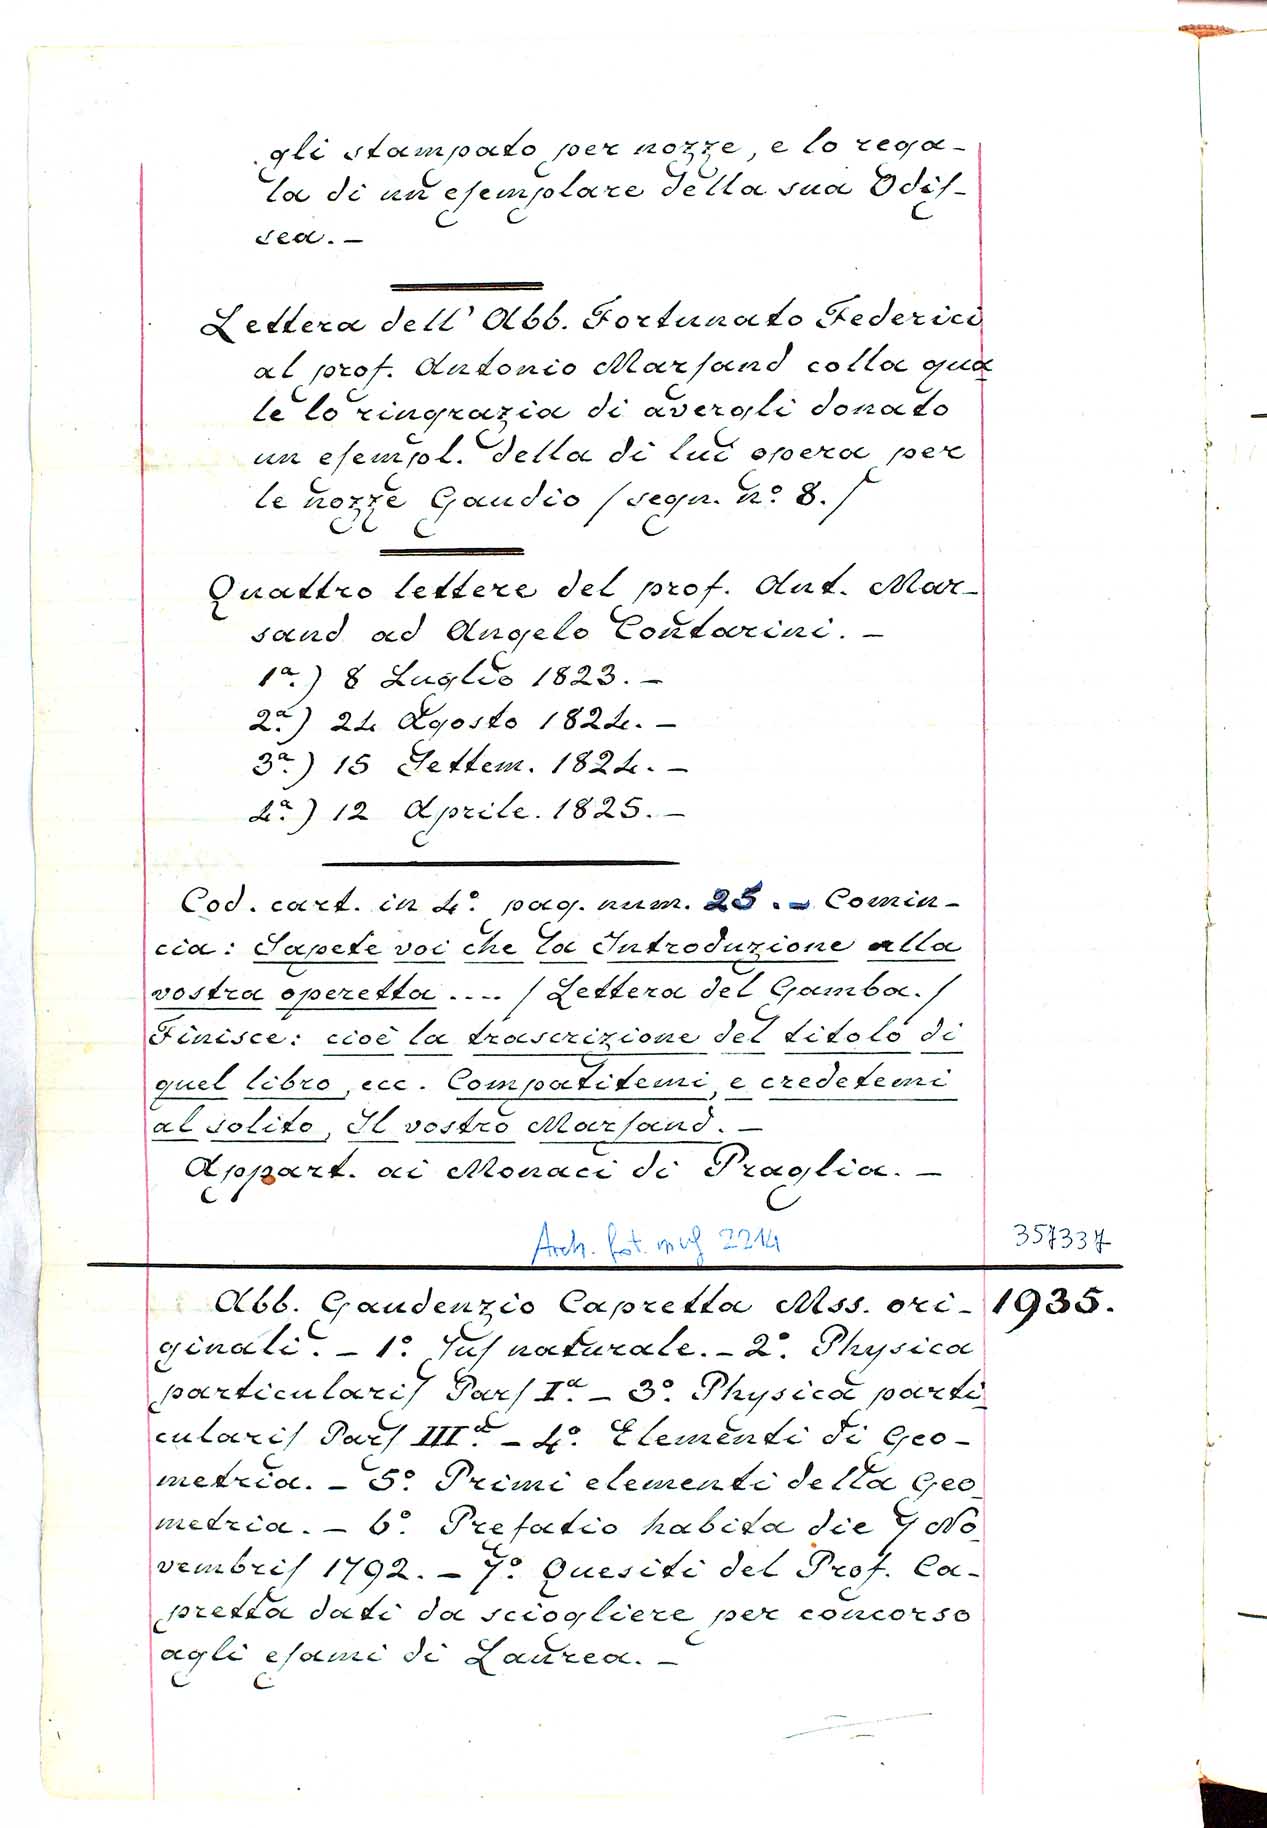 gli stampato per nozze, e lo rega-
la di un esemplare della sua Odis-
sea. -
Lettera dell' Abb. Fortunato Federici
al prof. Antonio Marsand colla qua
le lo ringrazia di avergli donato
un esempl. della di lui opera per
le nozze Gaudio / segn. nº 8. /
Quattro lettere del prof. Ant. Mar-
sand ad Angelo Contarini. -
1ª.) 8 Luglio 1823. -
2ª.) 24 Agosto 1824. -
3ª.) 15 Settem. 1824. -
4ª.) 12 Aprile. 1825. -
Cod. cart. in 4º. pag. num. 25. - Comin-
cia: Sapete voi che la Introduzione alla
vostra operetta .... / Lettera del Gamba. /
Finisce: cioè la trascrizione del titolo di
quel libro, ecc. Compatitemi, e credetemi
al solito, Il vostro Marsand. -
Appart. ai Monaci di Praglia. -
Arch. fot. 2214
357337
Abb. Gaudenzio Capretta Mss. ori- 1935.
ginali. - 1º. Jus naturale. - 2º. Physica
particularis Pars Iª. - 3º. Physica parti
cularis Pars IIIª. - 4º. Elementi di Geo-
metria. - 5º. Primi elementi della Geo
metria. - 6º. Prefatio habita die 7 No
vembris 1792. - 7º. Quesiti del Prof. Ca-
pretta dati da sciogliere per concorso
agli esami di Laurea. -